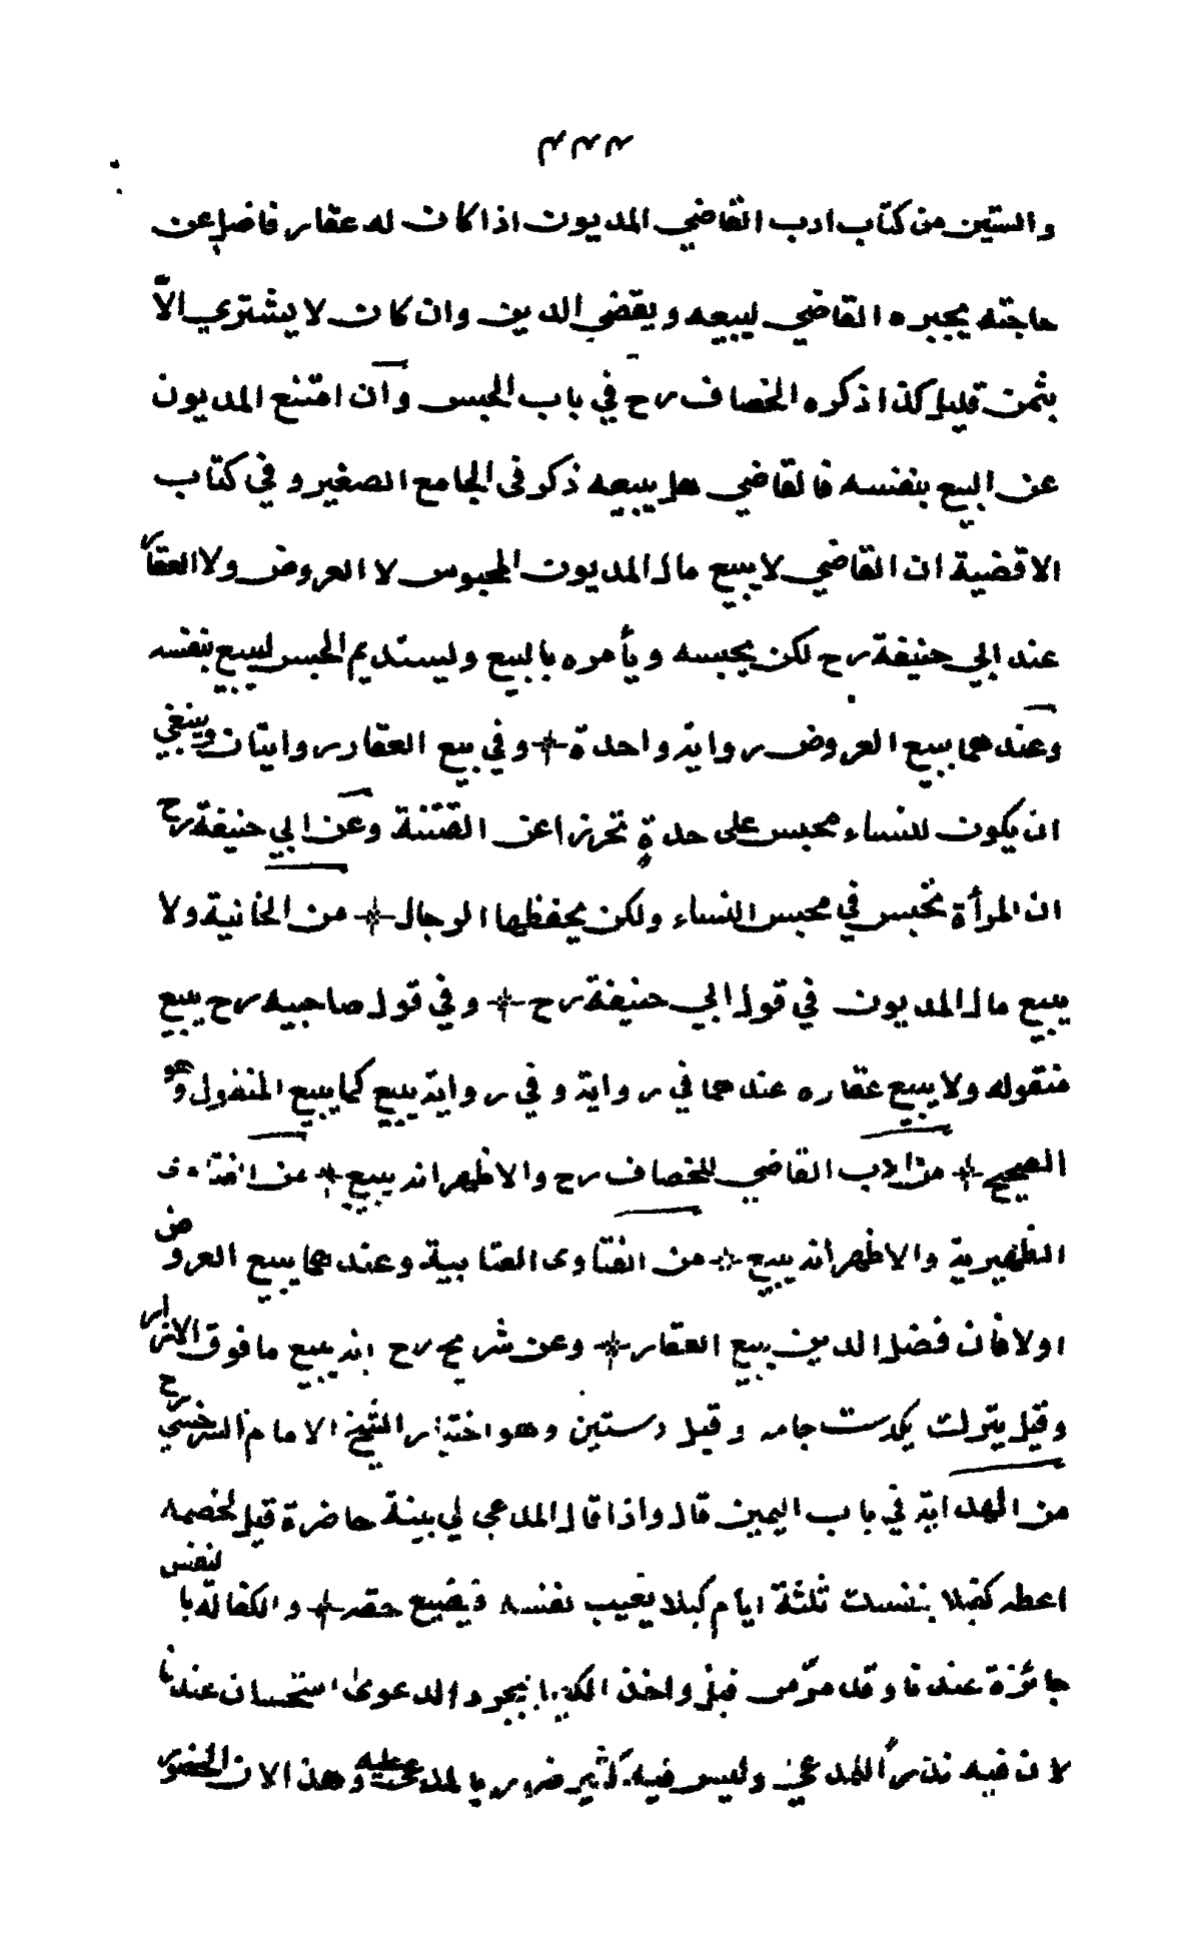 والستين من كتاب ادب القاضي المديون اذا كان له عقار فاضل عن
حاجته يجبره القاضي ليبيعه ويقضي الدين وان كان لا يشتري الّا
بثمن قليل كذا ذكره الخصاف رح في باب الحبس وان امتنع المديون
عن البيع بنفسه فالقاضي هل يبيعه ذكر فى الجامع الصغير وفي كتاب
الاقضية ان القاضي لا يبيع مال المديون المحبوس لا العروض ولا العقار
عند ابي حنيفة رح لكن يحبسه ويأمره بالبيع وليستديم الحبس ليبيع بنفسه
وعندهما يبيع العروض رواية واحدة وفي بيع العقار روايتان وينبغي
ان يكون للنساء محبس على حدةٍ تحرزا عن الفتنة وعن ابي حنيفة رح
ان المرأة تحبس في محبس النساء ولكن يحفظها الرجال من الخانية ولا
يبيع مال المديون في قول ابي حنيفة رح وفي قول صاحبيه رح يبيع
منقوله ولا يبيع عقاره عندهما في رواية وفي رواية يبيع كما يبيع المنقول وهو
الصحيح من ادب القاضي للخصاف رح والاظهر انه يبيع من
الظهيرية والاظهر انه يبيع من الفتاوى العتابية وعندهما يبيع العروض
اولا فان فضل الدين يبيع العقار وعن شريح رح انه يبيع ما فوق الازار
وقيل يترك يكدست جامه وقيل دستين وهو اختيار الشيخ الامام السرخسي رح
من الهداية في باب اليمين قال واذا قال المدعي لي بينة حاضرة قيل لخصمه
اعطه كفيلا بنفسك ثلثة ايام كيلا يغيب نفسه فيضيع حقه والكفالة بالنفس
جائزة عندنا وقد مرّ من قبل واخذ الكفيل بمجرد الدعوى استحسان عندنا
لان فيه نذرًا للمدعي وليس فيه كثير ضرر بالمدعى عليه وهذا لان الحضور